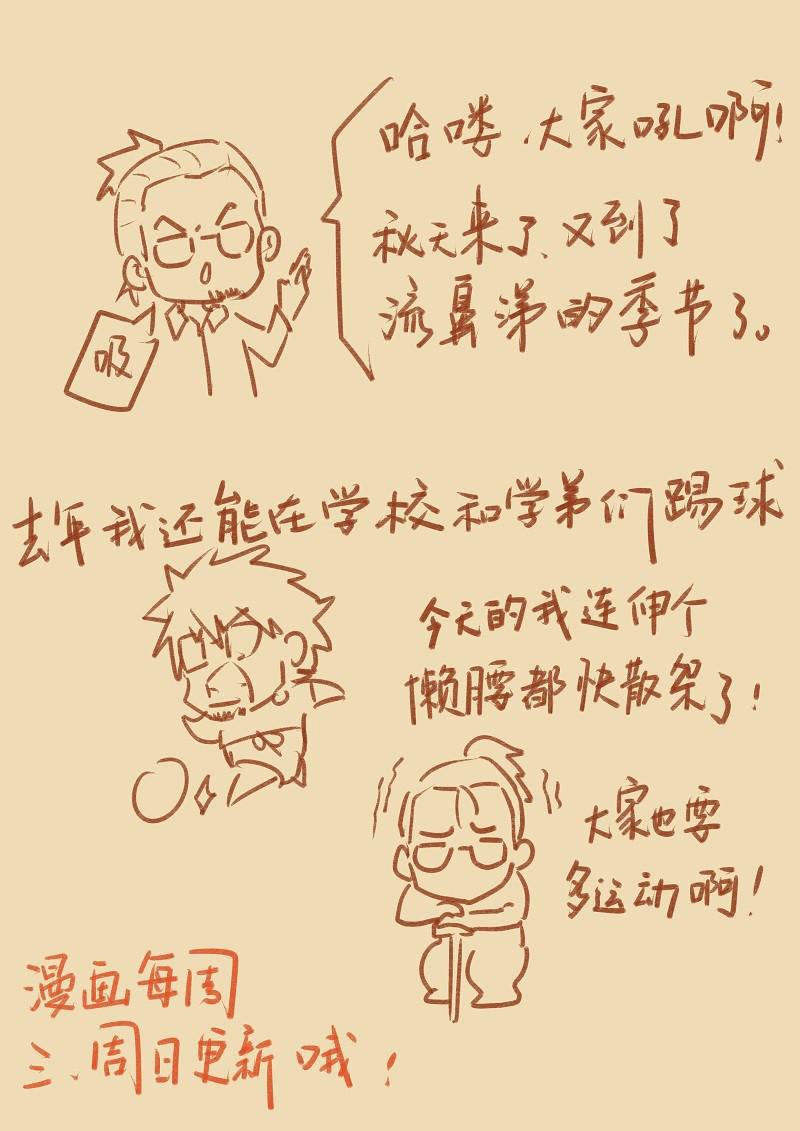 哈喽、大家吼啊!
秋天来了、又到了
流鼻涕的季节了。
吸
去年我还能在学校和学弟们踢球
今天的我连伸个
懒腰都快散架了!
大家也要
多运动啊!
漫画每周
三、周日更新哦!